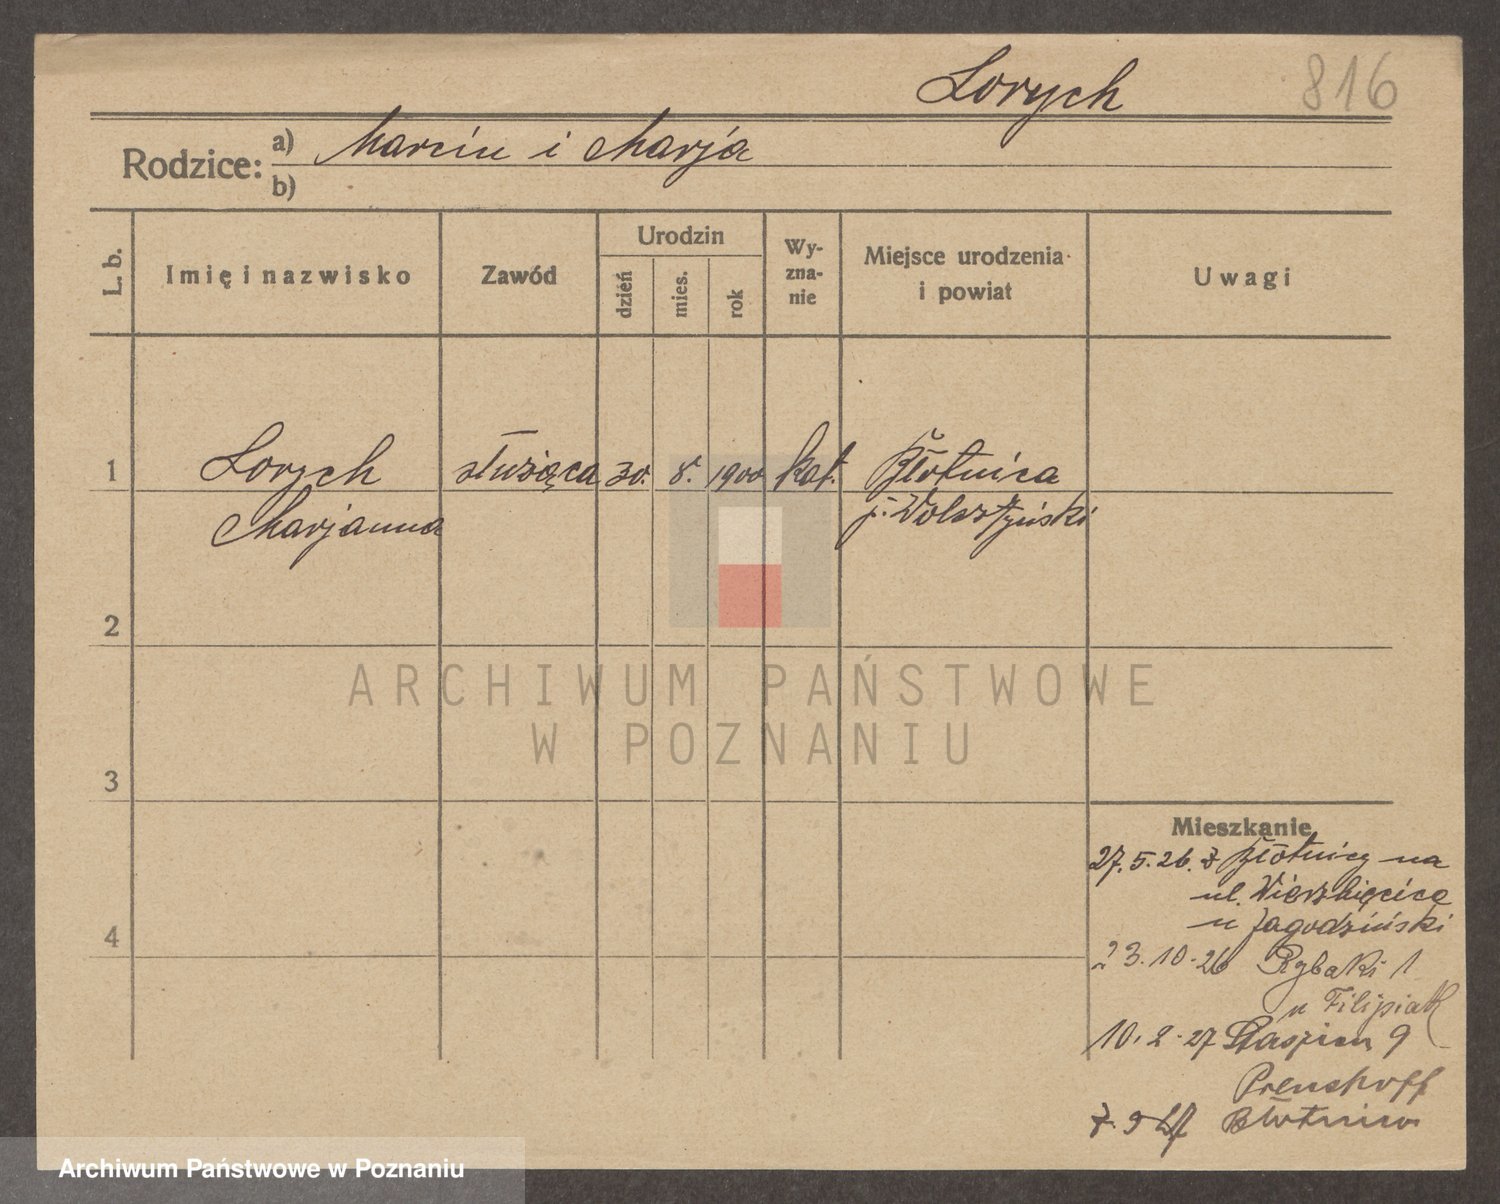 Lorych 816
Rodzice: a) Marcin i Marja
b)
L. b. Imię i nazwisko Zawód Urodzin dzień mies. rok Wy-zna-nie Miejsce urodzenia i powiat Uwagi
1 Lorych służąca 30. 8. 1900 kat. Błotnica
Marjanna p. Wolsztyński
2
ARCHIWUM PAŃSTWOWE
W POZNANIU
3
Mieszkanie
27.5.26. z Błotnicy na
ul. Wierzbięcice
u Jagodziński
4
23.10.26 Rybaki 1
u Filipiak
10.2.27 Staszica 9
7.9.27 Błotnica
Archiwum Państwowe w Poznaniu